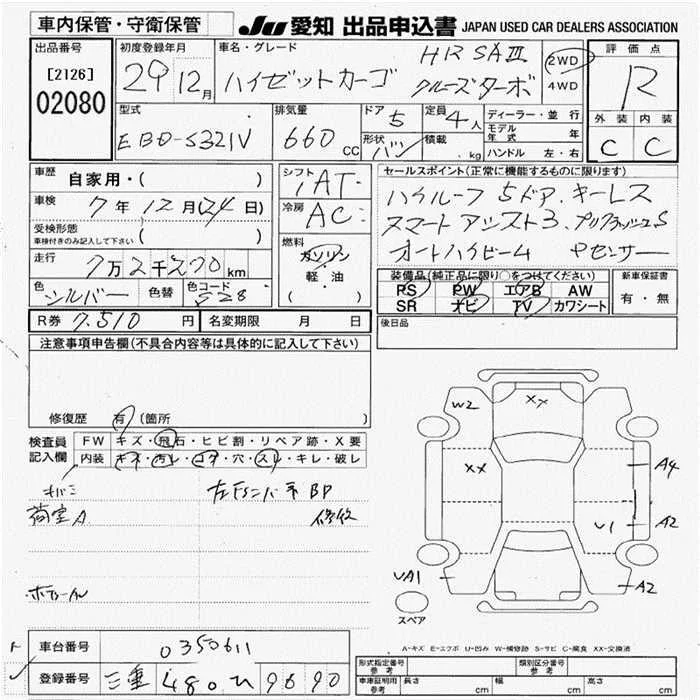 車内保管・守衛保管
JU 愛知 出品申込書 JAPAN USED CAR DEALERS ASSOCIATION
出品番号
[2126]
02080
初度登録年月
29 12月
車名・グレード
HR SAⅢ
ハイゼットカーゴ クルーズターボ
2WD
4WD
評価点
R
外装 内装
C C
型式
EBD-S321V
排気量
660 CC
ドア 5
形状 バン
定員 4人
積載 kg
ディーラー・並行
モデル年式 年
ハンドル 左・右
車歴 自家用・( )
車検 7年12月(24日)
受検形態
車検付きのみ記入して下さい ( )
走行 7万2千270km
色 シルバー 色替 色コード S28
シフト AT
冷房 AC
燃料
ガソリン
軽・油
( )
セールスポイント(正常に機能するものに限ります)
ハイルーフ 5ドア.キーレス
スマートアシスト3.プリクラッシュS
オートハイビーム Pセンサー
装備品(純正品に限り○をつけてください)
PS PW エアB AW
SR ナビ TV カワシート
新車保証書
有・無
R券 7,510円 名変期限 月 日
後日品
注意事項申告欄(不具合内容等は具体的に記入して下さい)
修復歴 有(箇所 )
検査員記入欄
FW キズ・飛石・ヒビ割・リペア跡・X要
内装 キズ・汚レ・コゲ・穴・スレ・キレ・破レ
荷室A
BP
修復
W2
XX
XX
A4
A2
U1
UA1
A2
スペア
A-キズ E-エクボ U-凹み W-補修跡 S-サビ C-腐食 XX-交換済
車台番号 0350611
登録番号 三重 480 ひ 9690
形式指定番号 参考
類別区分番号 参考
車庫証明用 参考 長さ cm 幅 cm 高さ cm